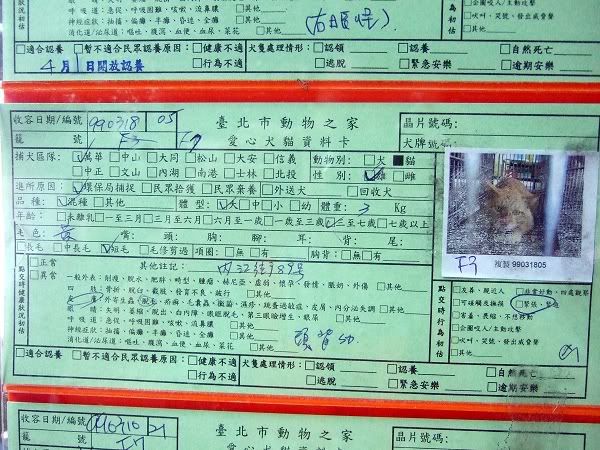 (右眼怪)
神經症狀:抽搐、偏癱、半癱、昏迷、全癱
消化道/泌尿道:嘔吐、腹瀉、血便、血尿、菜花
□其他
□適合認養 □暫不適合民眾認養原因:□健康不適 □行為不適
犬隻處理情形:□認領 □認養 □自然死亡
□逃脫 □緊急安樂 □逾期安樂
4月1日開放認養
收容日期/編號 990318 05 臺北市動物之家 晶片號碼:
籠 號 F3 F7 愛心犬貓資料卡 犬牌號碼:
捕犬區隊:萬華 □中山 □大同 □松山 □大安 □信義 動物別:□犬 ■貓
□中正 □文山 □內湖 □南港 □士林 □北投 性別:雄 □雌
進所原因:環保局捕捉 □民眾拾獲 □民眾棄養 □外送犬 □回收犬
品種:混種 □其他 體型:大 □中 □小 □幼 體重:3 Kg
年齡:□未離乳 □一至三月 □三月至六月 □六月至一歲 □一歲至三歲 三至七歲 □七歲以上
毛色:黃 嘴: 頭: 胸: 腳: 耳: 背: 尾:
□長毛 □中長毛 短毛 □毛修剪過 項圈:□無 □有 胸背:□無 □有
F7 複製 99031805
點交時健康狀況初估
□正常
□異常
其他註記:
一般外表:削瘦、脫水、肥胖、畸型、腫瘤、赫尼亞、虛弱、懷孕、發情、脹奶、外傷
四 肢:骨折、脫臼、截肢、發育不良、跛行 □其他
皮 膚:外寄生蟲、脫毛、疥癬、毛囊蟲、黴菌、濕疹、跳蚤過敏症、皮屑、內分泌失調 □其他
眼 睛:失明、萎縮、脫出、白內障、眼瞼脫毛、第三眼瞼增生、眼屎 □其他
呼吸症狀:急促、呼吸困難、咳嗽、流鼻膿 □其他
神經症狀:抽搐、偏癱、半癱、昏迷、全癱 □其他
消化道/泌尿道:嘔吐、腹瀉、血便、血尿、菜花 □其他
點交時行為狀況初估
□友善、親近人
□可碰觸及撫摸
緊張、緊迫
□害羞、畏縮、不想移動
□企圖咬人/主動攻擊
□吠叫、哭號、發出威脅聲
□其他
□適合認養 □暫不適合民眾認養原因:□健康不適 □行為不適
犬隻處理情形:□認領 □認養 □自然死亡
□逃脫 □緊急安樂 □逾期安樂
收容日期/編號 21 臺北市動物之家 晶片號碼:
籠 號 F7 愛心犬貓資料卡